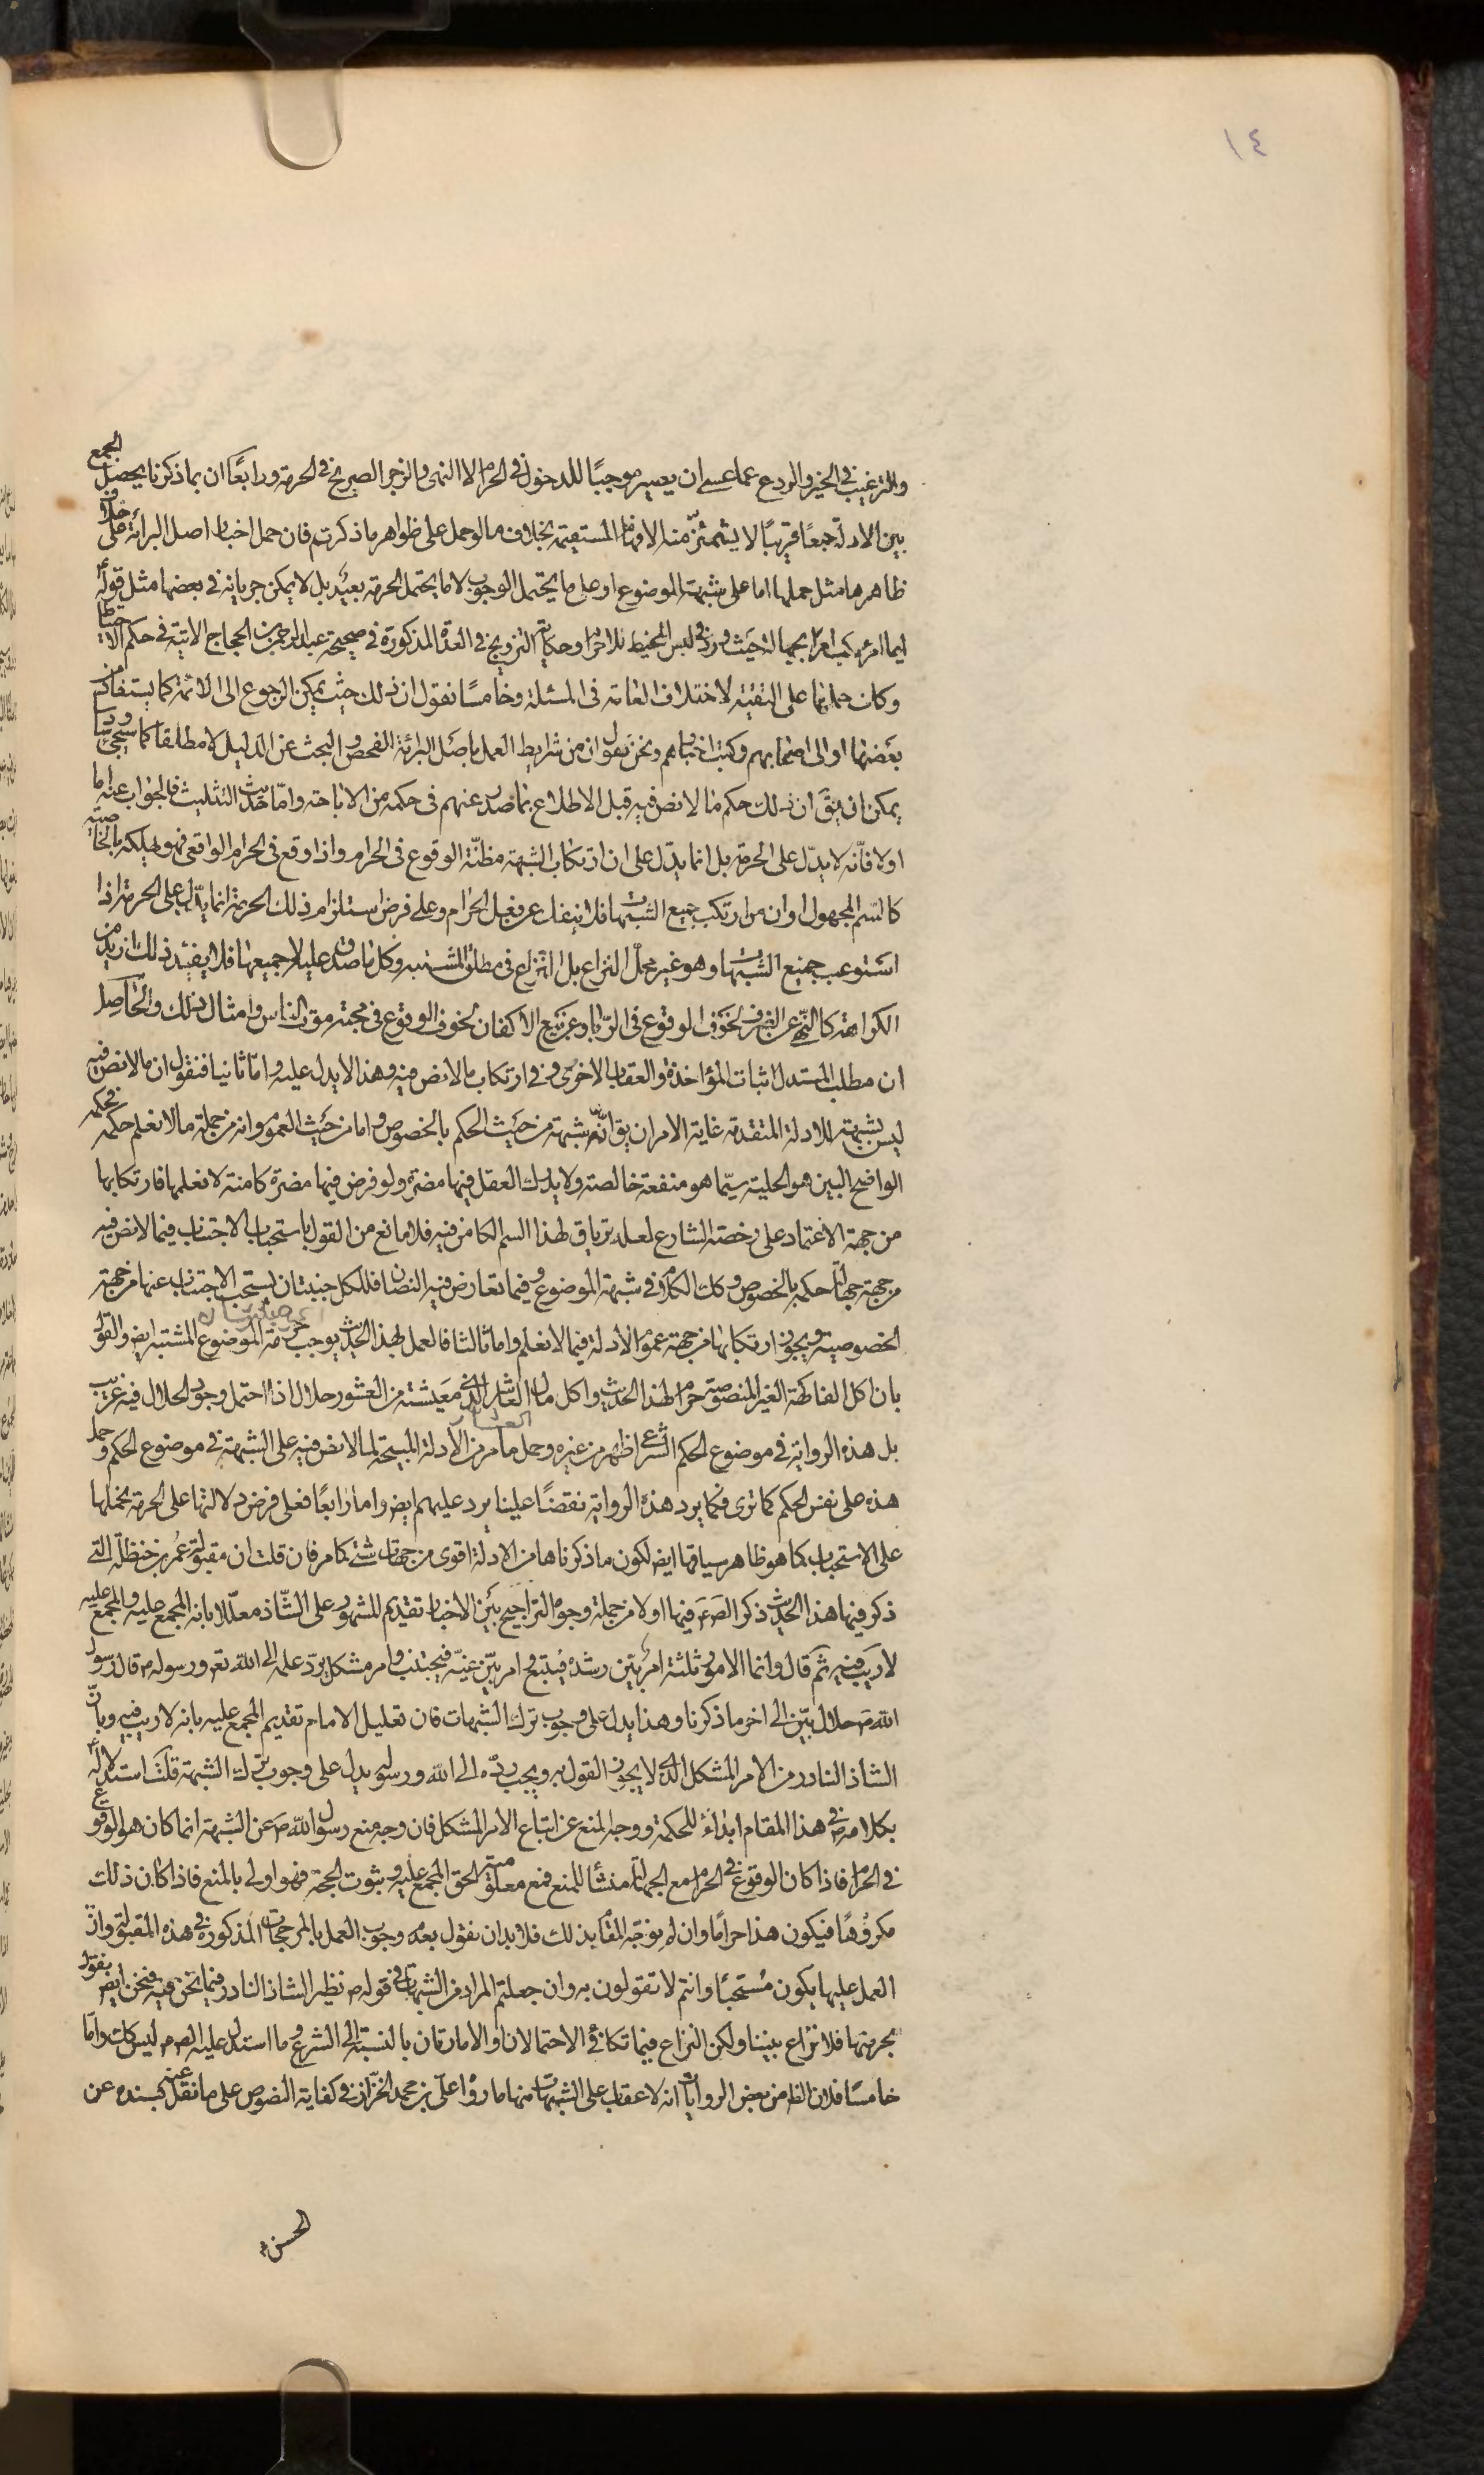 ١٤
والترغيب في الخير والردع عما عسى ان يصير موجبًا للدخول في الحرام لا النهى والزجر الصريح في الحرمة ورابعًا ان بما ذكرنا يحصل الجمع
بين الادلة جمعًا قريبًا لا يشمئزّ منه الافهام المستقيمة بخلاف ما لو حمل على ظواهر ما ذكرتم فان حمل اخبار اصل البرائة على خلاف
ظاهرها مثل حملها اما على شبهة الموضوع او على ما يحتمل الوجوب لا ما يحتمل الحرمة بعيد بل لا يمكن جريانه في بعضها مثل قوله ع
ايما امرء ركب امرا بجهالة حيث ورد في لبس المخيط للاحرام وحكاية التزويج في العدة المذكورة في صحيحة عبد الرحمن بن الحجاج الاتية في حكم الاحتياط
وكان حملها على التقية لاختلاف العامة في المسئلة وخامسًا نقول ان ذلك حيث يمكن الرجوع الى الائمة كما يستفاد من
بعضها او الى اصحابهم وكتب اخبارهم ونحن نقول ان من شرايط العمل باصل البرائة الفحص والبحث عن الدليل لا مطلقا كما سيجئ وسادسا
يمكن ان يقَ ان ذلك حكم ما لا نص فيه قبل الاطلاع بما صدر عنهم في حكمه من الاباحة وامّا حديث التثليث فالجواب عنه اما
اولا فانّه لا يدلّ على الحرمة بل انما يدلّ على ان ارتكاب الشبهة مظنّة الوقوع في الحرام واذا وقع في الحرام الواقعي فهو يهلكه بالخاصية
كالسّم المجهول او ان من ارتكب جميع الشبهات فلا ينفك عن فعل الحرام وعلى فرض استلزام ذلك الحرمة انما يدل على الحرمة اذا
استوعب جميع الشبهات وهو غير محلّ النزاع بل النزاع في مطلق المشتبه وكل ما صدق عليه لا جميعها فلا يفيد ذلك ازيد من
الكراهة كالنهي عن الصرف لخوف الوقوع في الرّبا وعن بيع الاكفان لخوف الوقوع في محبة موت الناس وامثال ذلك والحاصل
ان مطلب المستدل اثبات المؤاخذة والعقاب الاخروى في ارتكاب ما لا نص فيه وهذا لا يدل عليه واما ثانيا فنقول ان ما لا نص فيه
ليس بشبهة للادلة المتقدمة غاية الامر ان يق انّه شبهة من حيث الحكم بالخصوص واما من حيث العموم وانه من جملة ما لا نعلم حكمه فحكمه
الواضح البين هو الحلية سيّما هو منفعة خالصة ولا يدرك العقل فيها مضرة ولو فرض فيها مضرة كامنة لا نعلمها فارتكابها
من جهة الاعتماد على رخصة الشارع لعله ترياق لهذا السم الكامن فيه فلا مانع من القول باستحباب الاجتناب فيما لا نص فيه
من جهة جهالة حكمه بالخصوص وكك الكلام في شبهة الموضوع وفيما تعارض فيه النصان فللكل جنبتان يستحب الاجتناب عنها من جهة
الخصوصية ويجوز ارتكابها من جهة عموم الادلة فيما لا نعلم واما ثالثا فالعمل بهذا الحديث يوجب حرمة الموضوع المشتبه ايض والقول
بان اكل الفاكهة الغير المنصوصة حرام لهذا الحديث واكل مال العاشر الذي معيشته من العشور حلال اذا احتمل وجود الحلال فيه غريب
العشار
بل هذه الرواية في موضوع الحكم الشرعي اظهر من غيره وحمل ما مر من الادلة المبيحة لما لا نص فيه على الشبهة في موضوع الحكم وحمل
هذه على نفس الحكم كما ترى فكما يرد هذه الرواية نقضًا علينا يرد عليهم ايض واما رابعًا فعلى فرض دلالتها على الحرمة نحملها
على الاستحباب كما هو ظاهر سياقها ايض لكون ما ذكرناها من الادلة اقوى من جهات شتى كما مر فان قلت ان مقبولة عمر بن حنظلة التي
ذكر فيها هذا الحديث ذكر الصَ عَ فيها اولا من جملة وجوه التراجيح بين الاخبار تقديم المشهور على الشّاذ معلّلا بانه المجمع عليه والمجمع عليه
لا ريب فيه ثم قال وانما الامور ثلثة امر بيّن رشده فيتبع وامر بيّن غيّه فيجتنب وامر مشكل يرد علمه الى الله تع ورسوله ص قال رسول
الله ص حلال بيّن الى اخر ما ذكرنا وهذا يدل على وجوب ترك الشبهات فان تعليل الامام تقديم المجمع عليه بانه لا ريب فيه وبانّ
الشاذ النادر من الامر المشكل الذي لا يجوز القول به ويجب ردّه الى الله ورسوله يدل على وجوب ترك الشبهة قلت استدلاله ع
بكلامه ص في هذا المقام ابداء للحكمة ووجه المنع عن اتباع الامر المشكل فان وجه منع رسول الله ص عن الشبهة انما كان هو الوقوع
في الحرام فاذا كان الوقوع في الحرام مع الجهالة منشأ للمنع فمع معلومية الحق المجمع عليه وثبوت الحجة فهو اولى بالمنع فاذا كان ذلك
مكروهًا فيكون هذا حرامًا وان لم نوجّه المقام بذلك فلا بد ان نقول بعدم وجوب العمل بالمرجحات المذكورة في هذه المقبولة وانّ
العمل عليها يكون مستحبًا وانتم لا تقولون به وان جعلتم المراد من الشبهات في قوله ص نظير الشاذ النادر فيما نحن فيه فنحن ايض نقول
بحرمتها فلا نزاع بيننا ولكن النزاع فيما تكافئ الاحتمالان او الامارتان بالنسبة الى الشرع وما استدل عليه الص ع ليس كك واما
خامسًا فلان الظ من بعض الروايات انه لا عقاب على الشبهات منها ما رواه علي بن محمد الخزّاز في كفاية النصوص على ما نقل عنه بسنده عن
الحسن